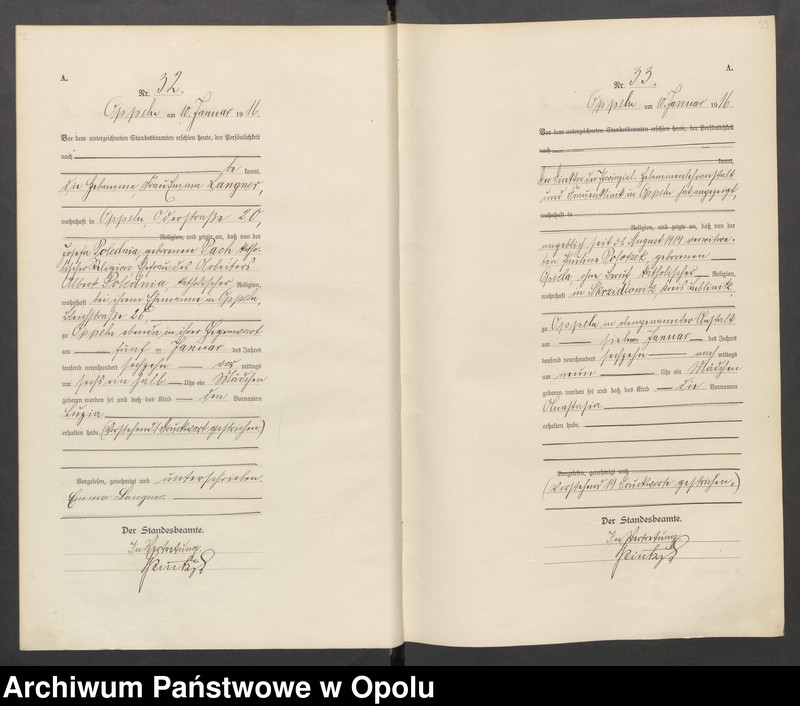 A.
Nr. 32.
Oppeln am 10. Januar 1916.
Vor dem unterzeichneten Standesbeamten erschien heute, der Persönlichkeit
nach
be kannt,
die Hebamme, Frau Emma Langner,
wohnhaft in Oppeln, Oderstraße 20,
Religion, und zeigte an, daß von der
Josefa Polednia, geborenen Pach, katho-
lischer Religion, Ehefrau des Arbeiters
Albert Polednia, katholischer Religion,
wohnhaft bei ihrem Ehemanne in Oppeln,
Bleichstraße 26,
zu Oppeln ebenda in ihrer Gegenwart
am fünften Januar des Jahres
tausend neunhundert sechzehn vor mittags
um sechs ein halb Uhr ein Mädchen
geboren worden sei und daß das Kind den Vornamen
Luzia
erhalten habe. (Vorstehend 1 Druckwort gestrichen)
Vorgelesen, genehmigt und unterschrieben.
Emma Langner.
Der Standesbeamte.
In Vertretung.
A.
Nr. 33.
Oppeln am 10. Januar 1916.
Vor dem unterzeichneten Standesbeamten erschien heute, der Persönlichkeit
nach
kannt,
Der Direktor der Provinzial-Hebammenlehranstalt
und Frauenklinik in Oppeln hat angezeigt,
wohnhaft in
Religion, und zeigte an, daß von der
angeblich seit 31. August 1914 verwitwe-
ten Pauline Polotzek, geborenen
ohne Beruf, katholischer Religion,
wohnhaft in Skrzidlowitz, Kreis Lublinitz,
zu Oppeln in obengenannter Anstalt
am siebten Januar des Jahres
tausend neunhundert sechzehn nach mittags
um neun Uhr ein Mädchen
geboren worden sei und daß das Kind die Vornamen
Anastasia
erhalten habe.
Vorgelesen, genehmigt und
(Vorstehend 19 Druckworte gestrichen.)
Der Standesbeamte.
In Vertretung.
Archiwum Państwowe w Opolu